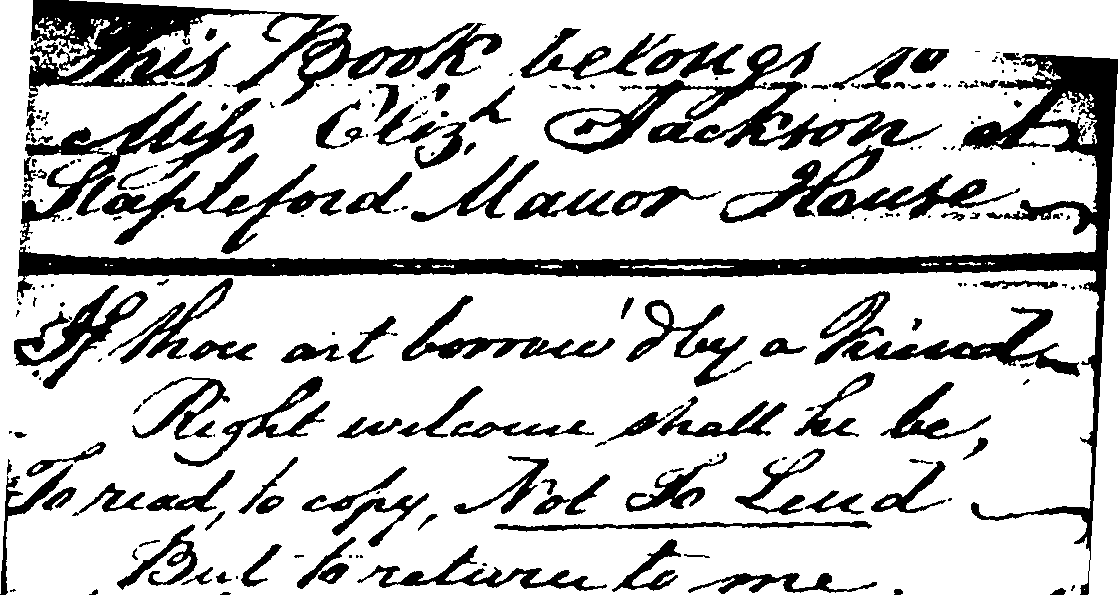 This Book belongs to
Miss Eliz.h Jackson at
Stapleford Manor House
If thou art borrow'd by a Friend
Right welcome shall he be,
To read, to copy, Not To Lend
But to return to me.